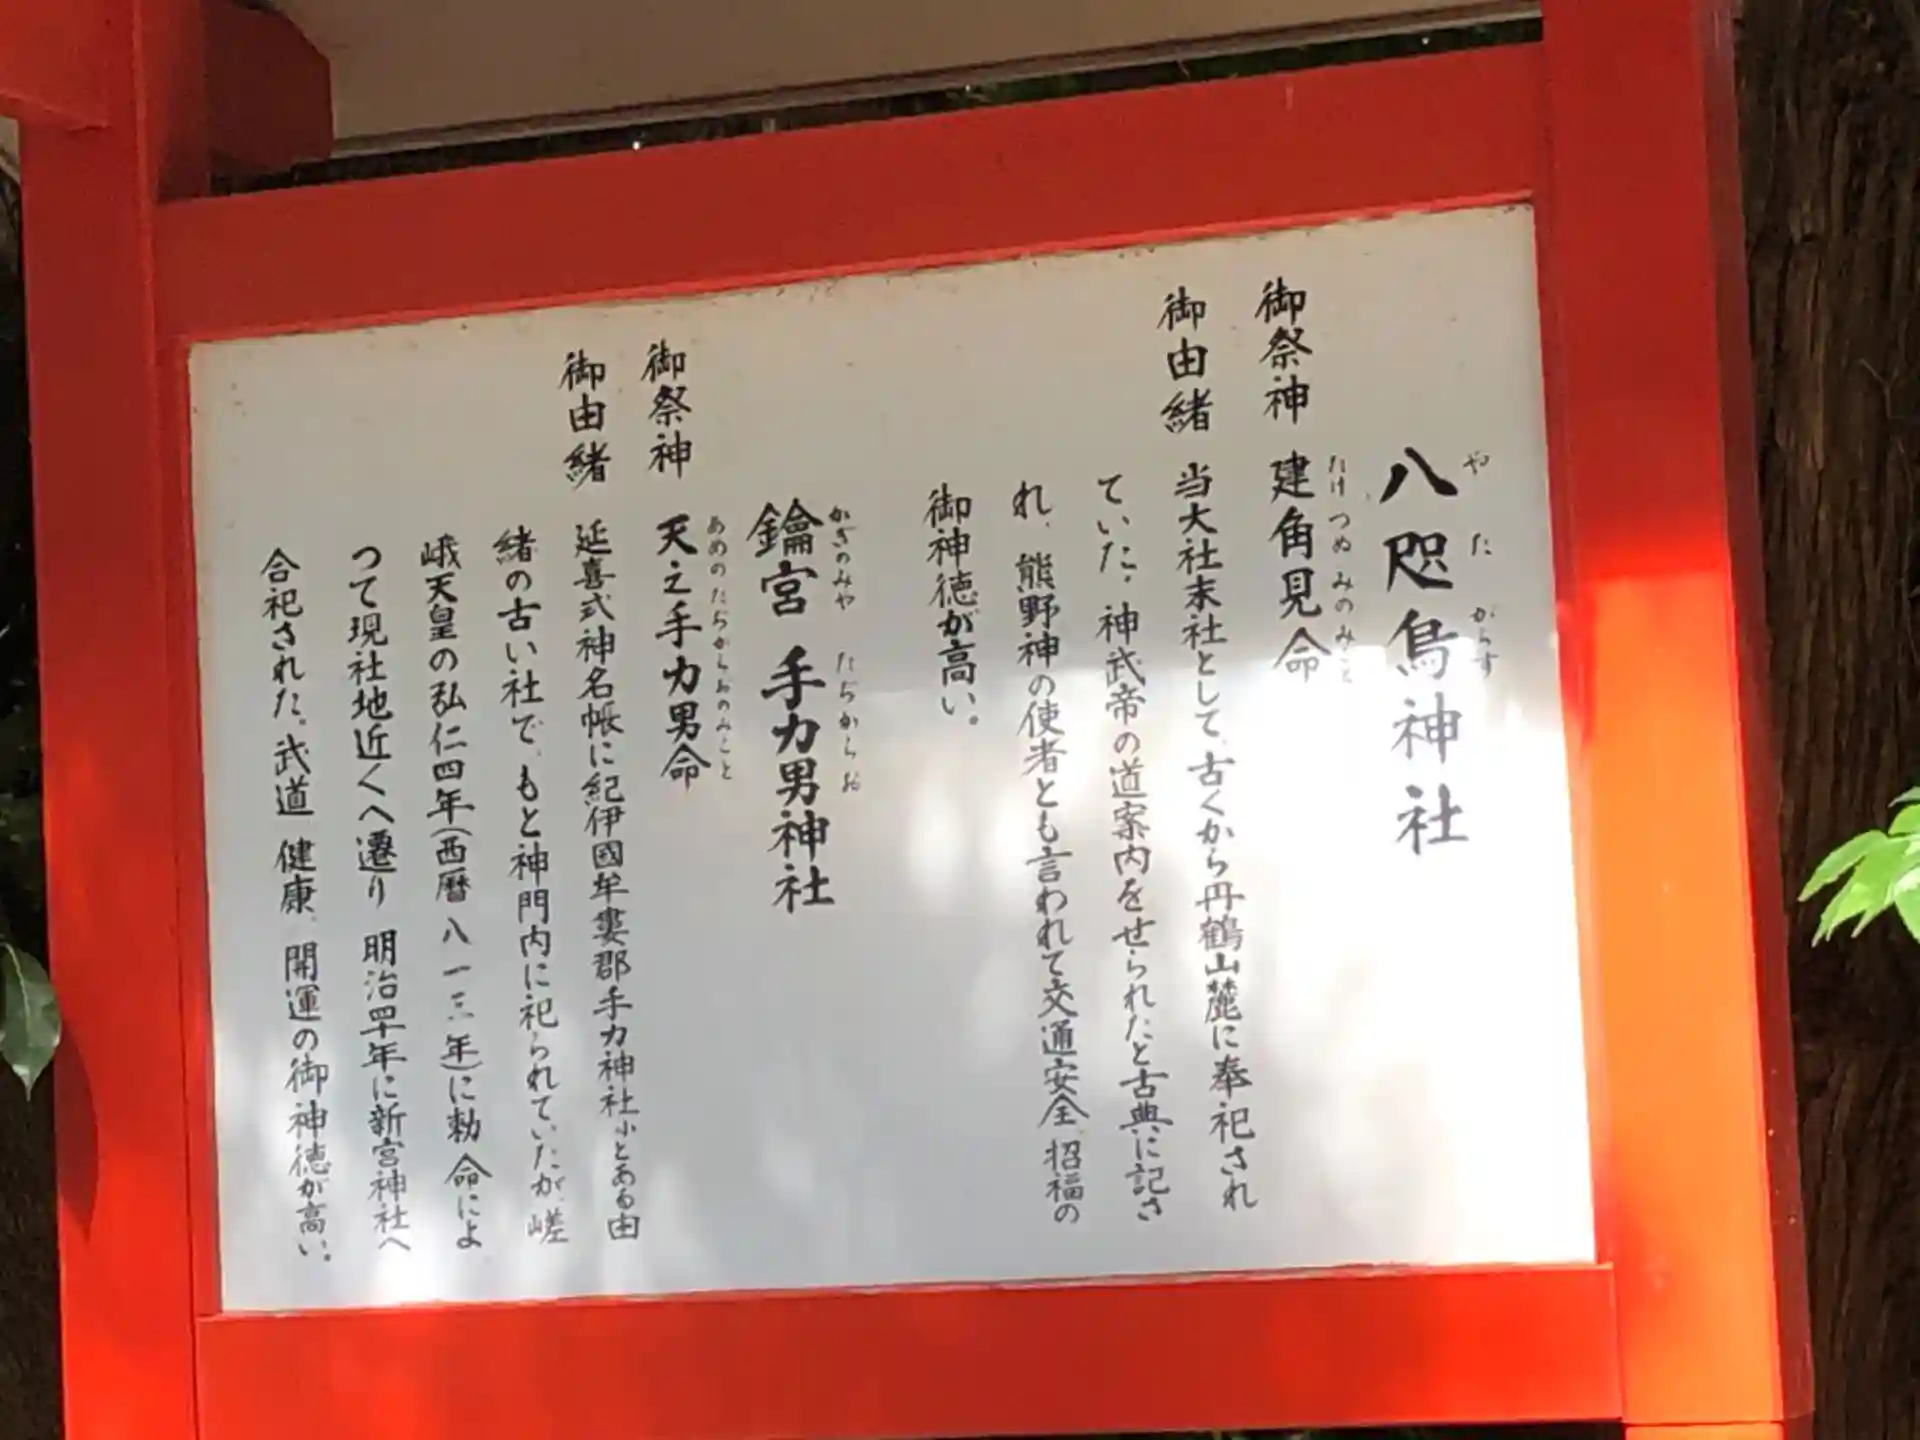 八咫烏神社
やたがらす
御祭神 建角見命
たけつぬみのみこと
御由緒 当大社末社として、古くから丹鶴山麓に奉祀され
ていた。神武帝の道案内をせられたと古典に記さ
れ、熊野神の使者とも言われて交通安全、招福の
御神徳が高い。
鑰宮 手力男神社
かぎのみや たぢからお
御祭神 天之手力男命
あめのたぢからおのみこと
御由緒 延喜式神名帳に紀伊國牟婁郡手力神社小とある由
緒の古い社で、もと神門内に祀られていたが、嵯
峨天皇の弘仁四年(西暦八一三年)に勅命によ
つて現社地近くへ遷り 明治四十年に新宮神社へ
合祀された。武道 健康、開運の御神徳が高い。